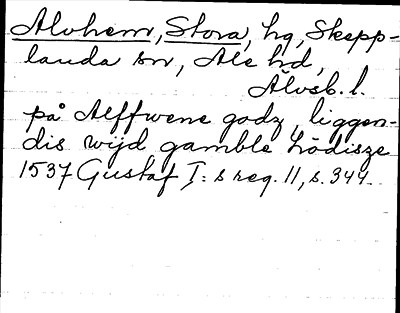 Alvhem, Stora, hg, Skepp-
landa sn, Ale hd,
Älvsb. l.
på Alffwene godz, liggen-
dis wijd gamble Lödisze
1537 Gustaf I: s reg. 11, s. 344